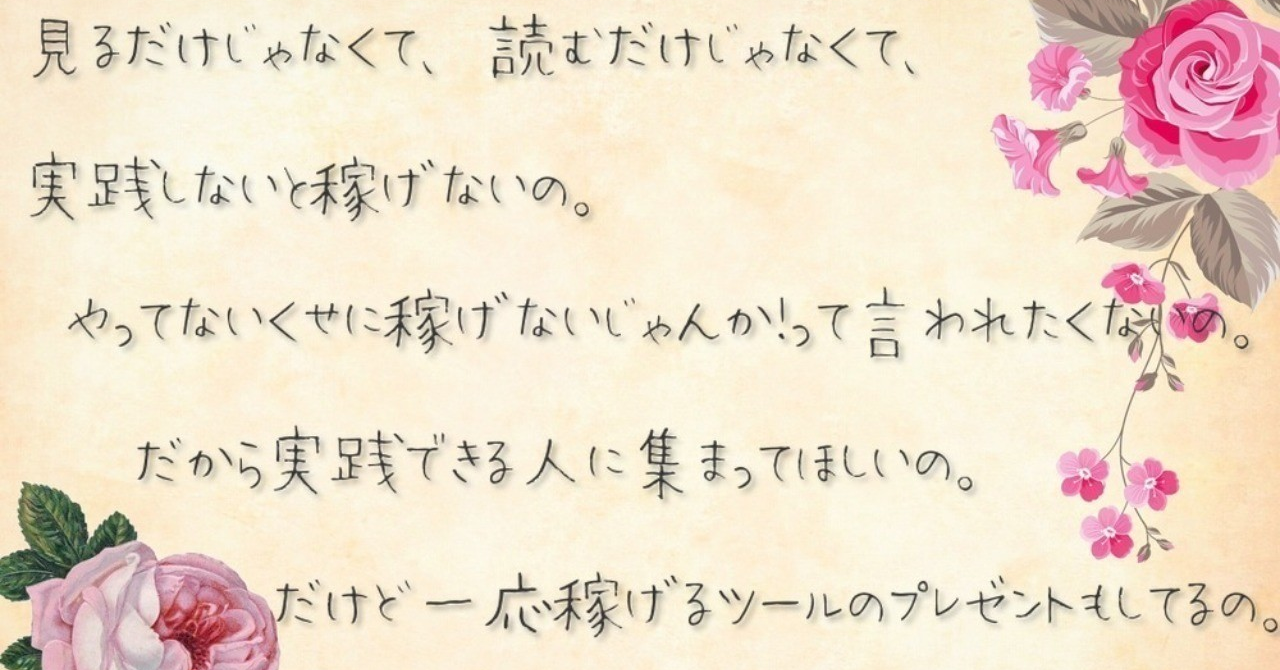 見るだけじゃなくて、 読むだけじゃなくて、
実践しないと稼げないの。
やってないくせに稼げないじゃんか!って言われたくないの。
だから実践できる人に集まってほしいの。
だけど一応稼げるツールのプレゼントもしてるの。